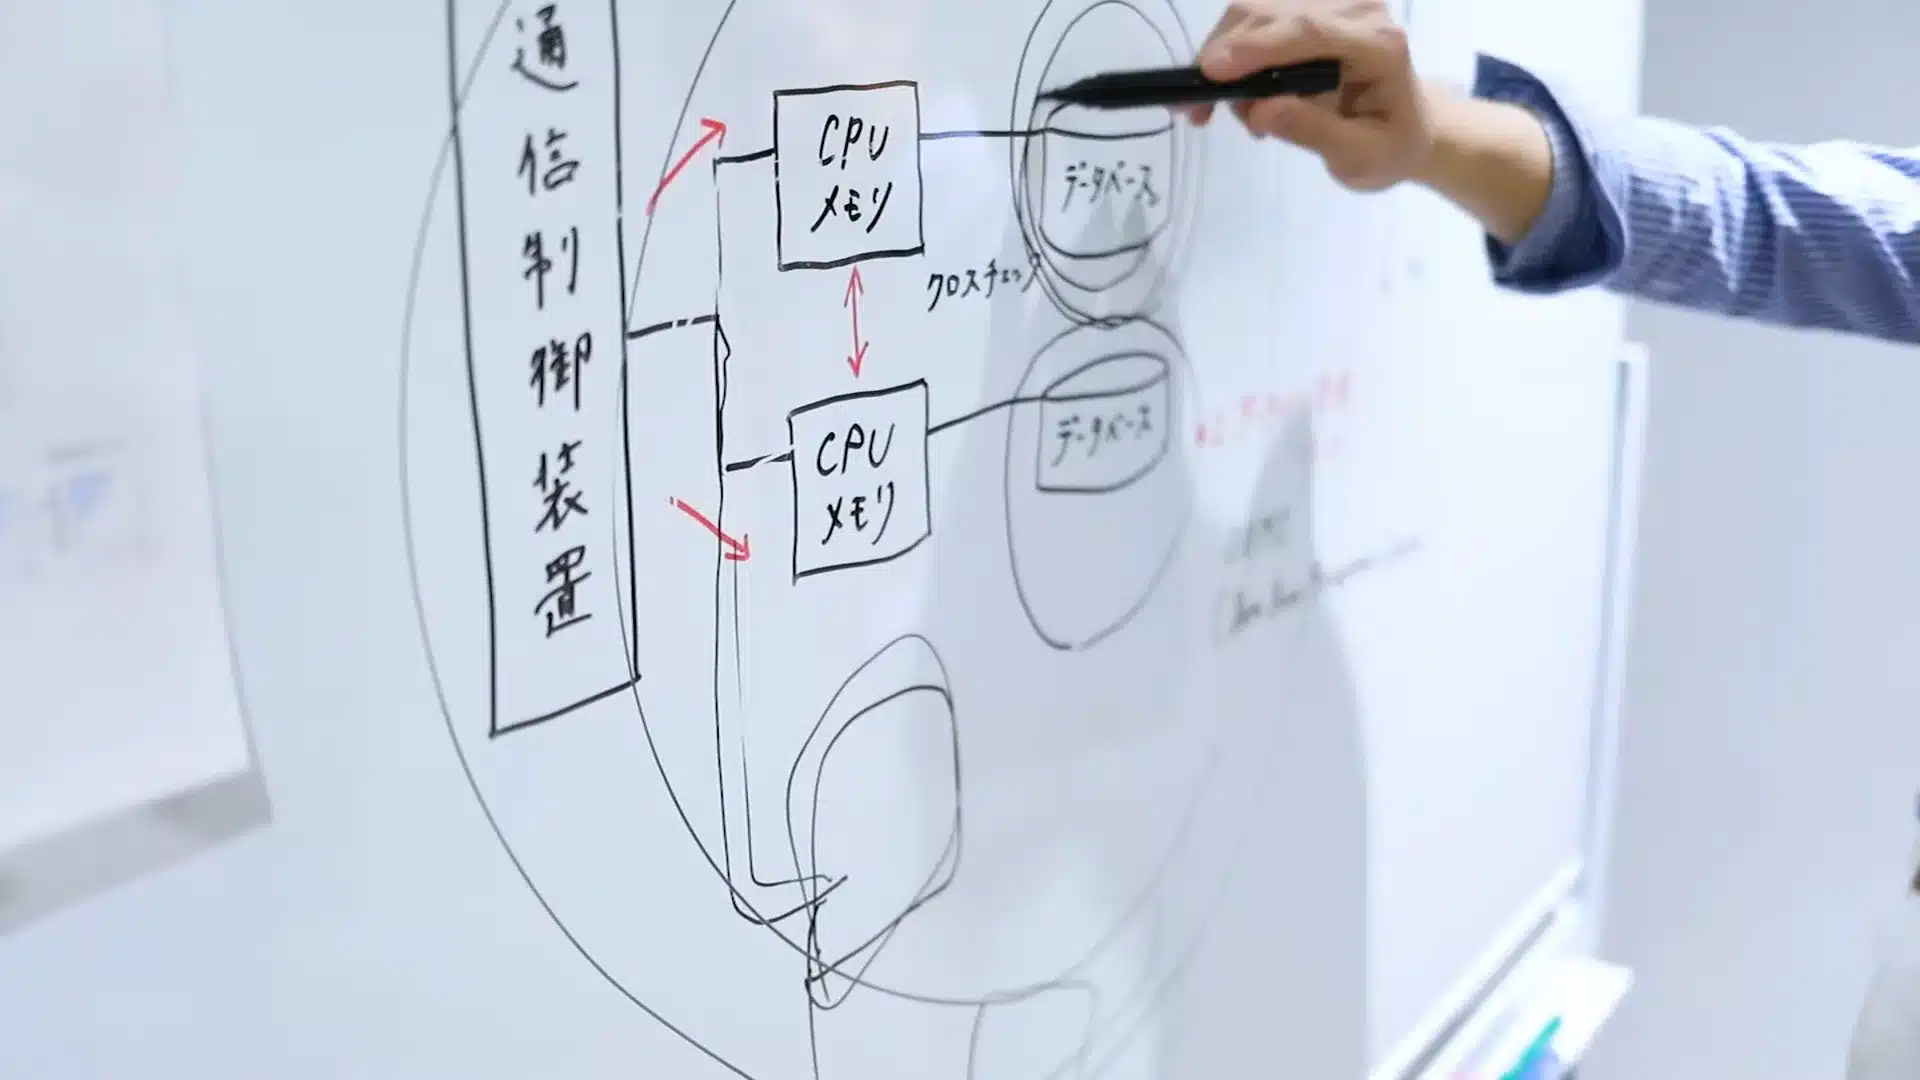 通信制御装置
CPU
メモリ
データベース
クロスチェック
CPU
メモリ
データベース